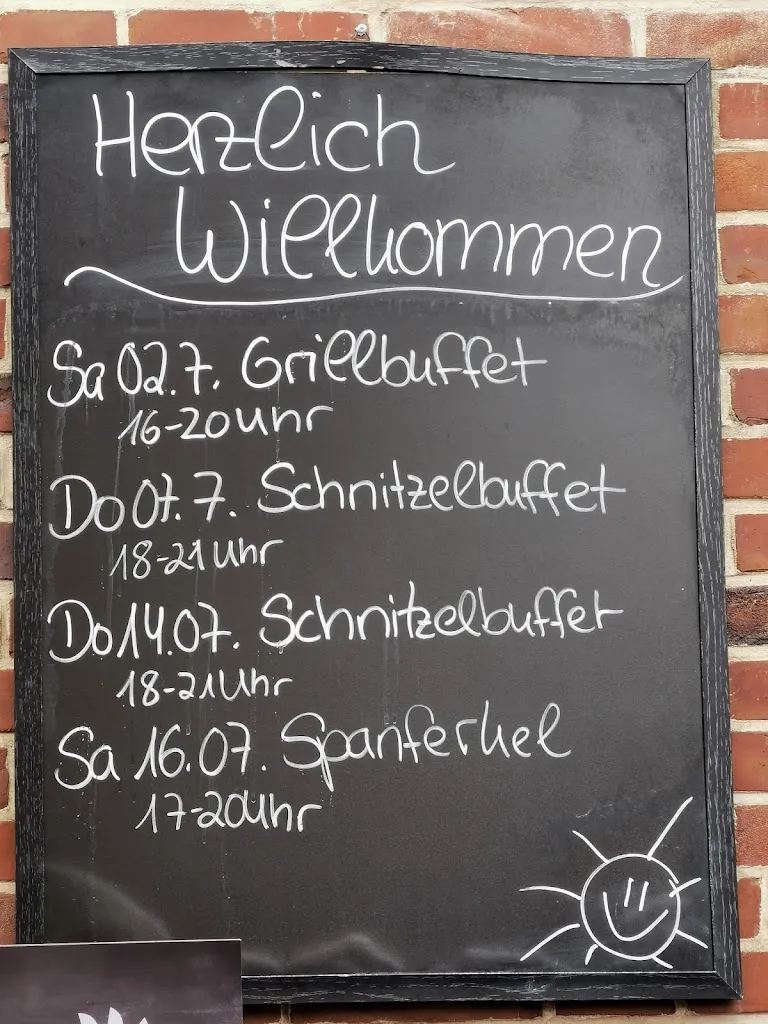 Herzlich
Willkommen
Sa 02.7. Grillbuffet
16-20 Uhr
Do 07.7. Schnitzelbuffet
18-21 Uhr
Do 14.07. Schnitzelbuffet
18-21 Uhr
Sa 16.07. Spanferkel
17-20 Uhr